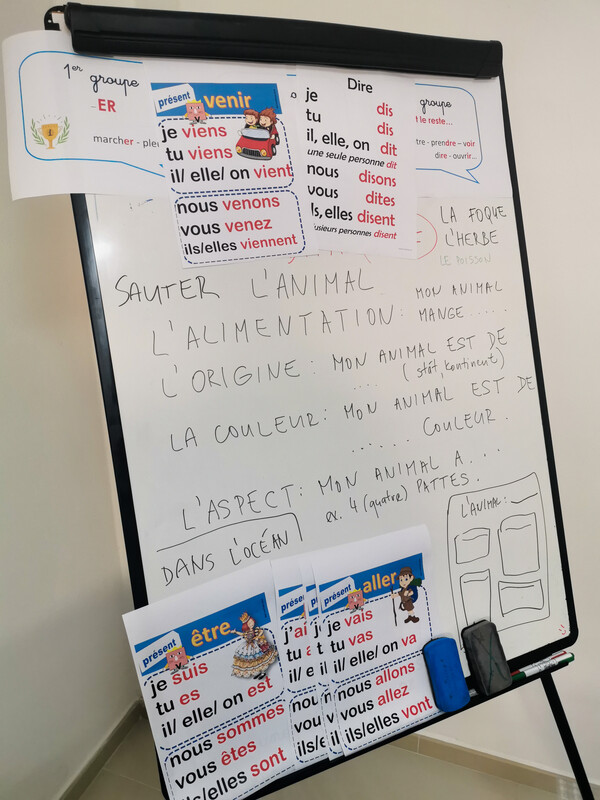 1er groupe
-ER
marcher - pleu
présent venir
je viens
tu viens
il/ elle/ on vient
nous venons
vous venez
ils/elles viennent
Dire
je dis
tu dis
il, elle, on dit
une seule personne dit
nous disons
vous dites
ils, elles disent
plusieurs personnes disent
groupe
t le reste...
tre - prendre - voir
dire - ouvrir...
LA FOQUE
L'HERBE
LE POISSON
SAUTER L'ANIMAL
L'ALIMENTATION: MON ANIMAL
MANGE .....
L'ORIGINE: MON ANIMAL EST DE
.... (stát, kontinent)
LA COULEUR: MON ANIMAL EST DE
...... COULEUR.
L'ASPECT: MON ANIMAL A...
ex. 4 (quatre) PATTES.
DANS L'OCÉAN
L'ANIMAL:
présent être
je suis
tu es
il/ elle/ on est
nous sommes
vous êtes
ils/elles sont
présent
j'ai
tu a
il/ e
nou
vou
ils/e
présent aller
je vais
tu vas
il/ elle/ on va
nous allons
vous allez
ils/elles vont